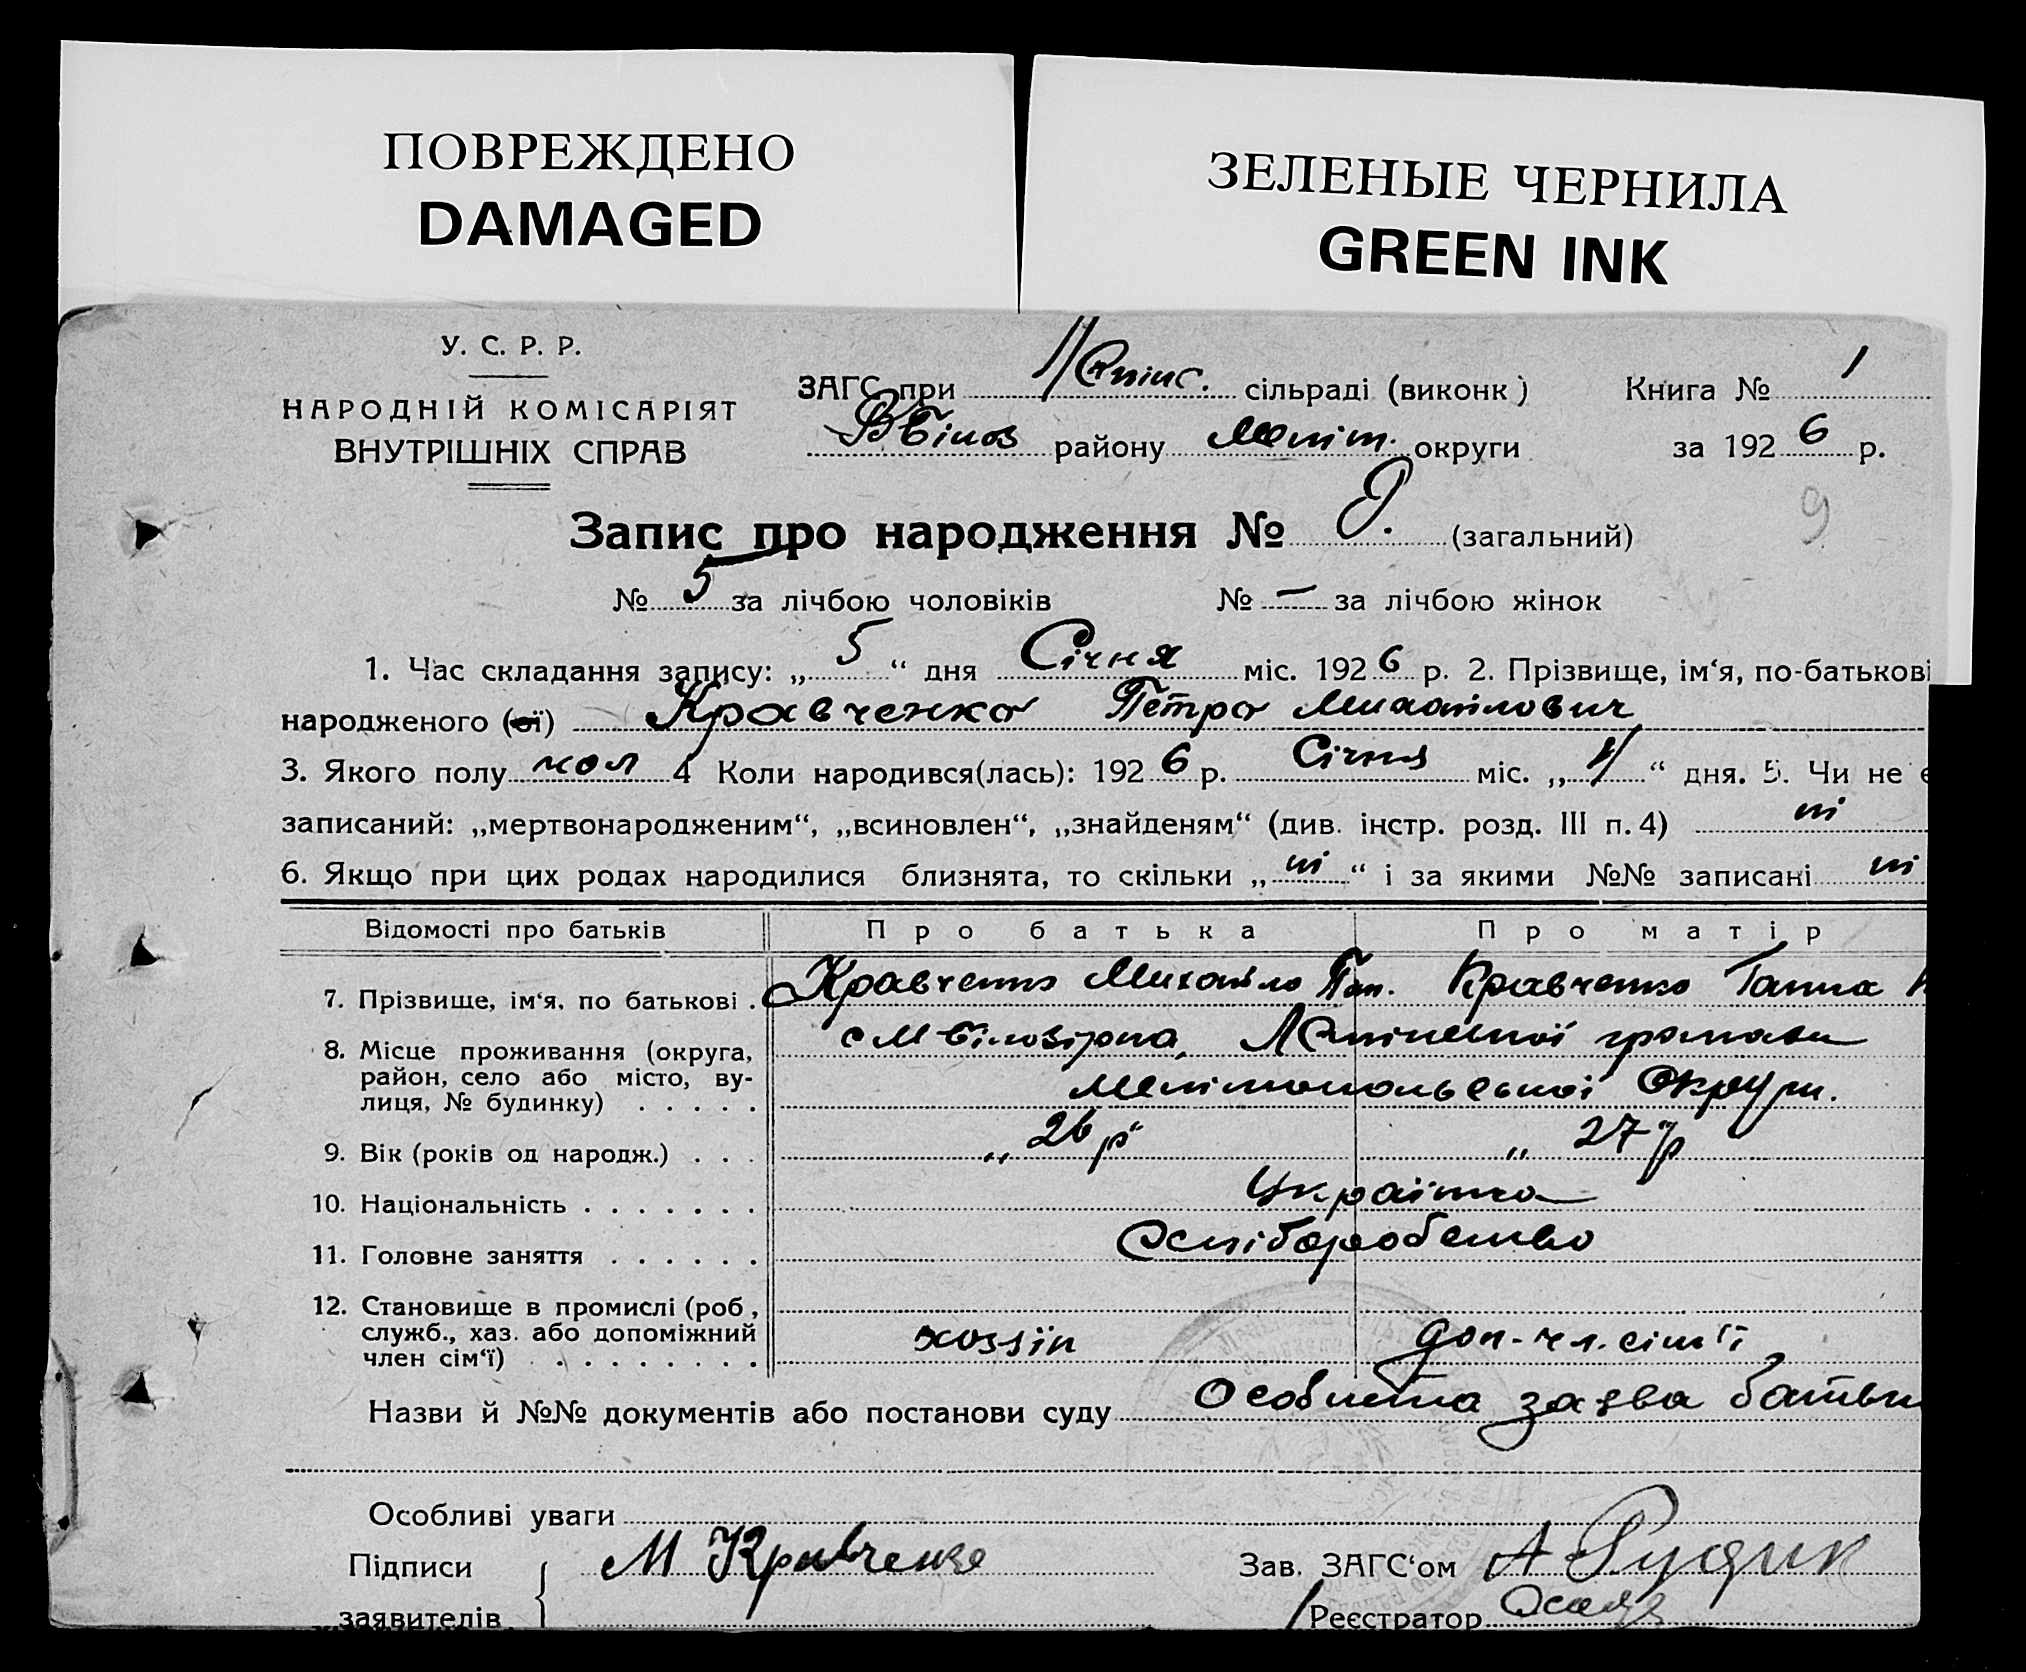 ПОВРЕЖДЕНО
DAMAGED
ЗЕЛЕНЫЕ ЧЕРНИЛА
GREEN INK
У. С. Р. Р.
НАРОДНІЙ КОМІСАРІЯТ
ВНУТРІШНІХ СПРАВ
ЗАГС при сільраді (виконк) Книга № 1
району Меліт. округи за 1926 р.
9
Запис про народження № 9. (загальний)
№ 5 за лічбою чоловіків № — за лічбою жінок
1. Час складання запису: „5“ дня Січня міс. 1926 р. 2. Прізвище, ім‘я, по-батькові
народженого (ої) Кравченко Петро Михайлович
3. Якого полу чол 4 Коли народився(лась): 1926 р. Січня міс. „4“ дня. 5. Чи не є
записаний: „мертвонародженим“, „всиновлен“, „знайденям“ (див. інстр. розд. III п. 4) ні
6. Якщо при цих родах народилися близнята, то скільки „ні“ і за якими №№ записані ні
Відомості про батьків Про батька Про матір
7. Прізвище, ім‘я, по батькові . Кравченко Михайло Пан. Кравченко Ганна
8. Місце проживання (округа, громади
район, село або місто, ву- Мелітопольської Округи.
лиця, № будинку) . . . . .
9. Вік (років од народж.) . . . „ 26 р“ „ 27 р
10. Національність . . . . . . . Українка
11. Головне заняття . . . . . . Хліборобство
12. Становище в промислі (роб,
служб., хаз. або допоміжний хоззїн доп-чл. сім'ї
член сім‘ї) . . . . . . . .
Назви й №№ документів або постанови суду Особиста заява батьки
Особливі уваги
Підписи М Кравченко Зав. ЗАГС‘ом А Рудик
заявителів Реєстратор